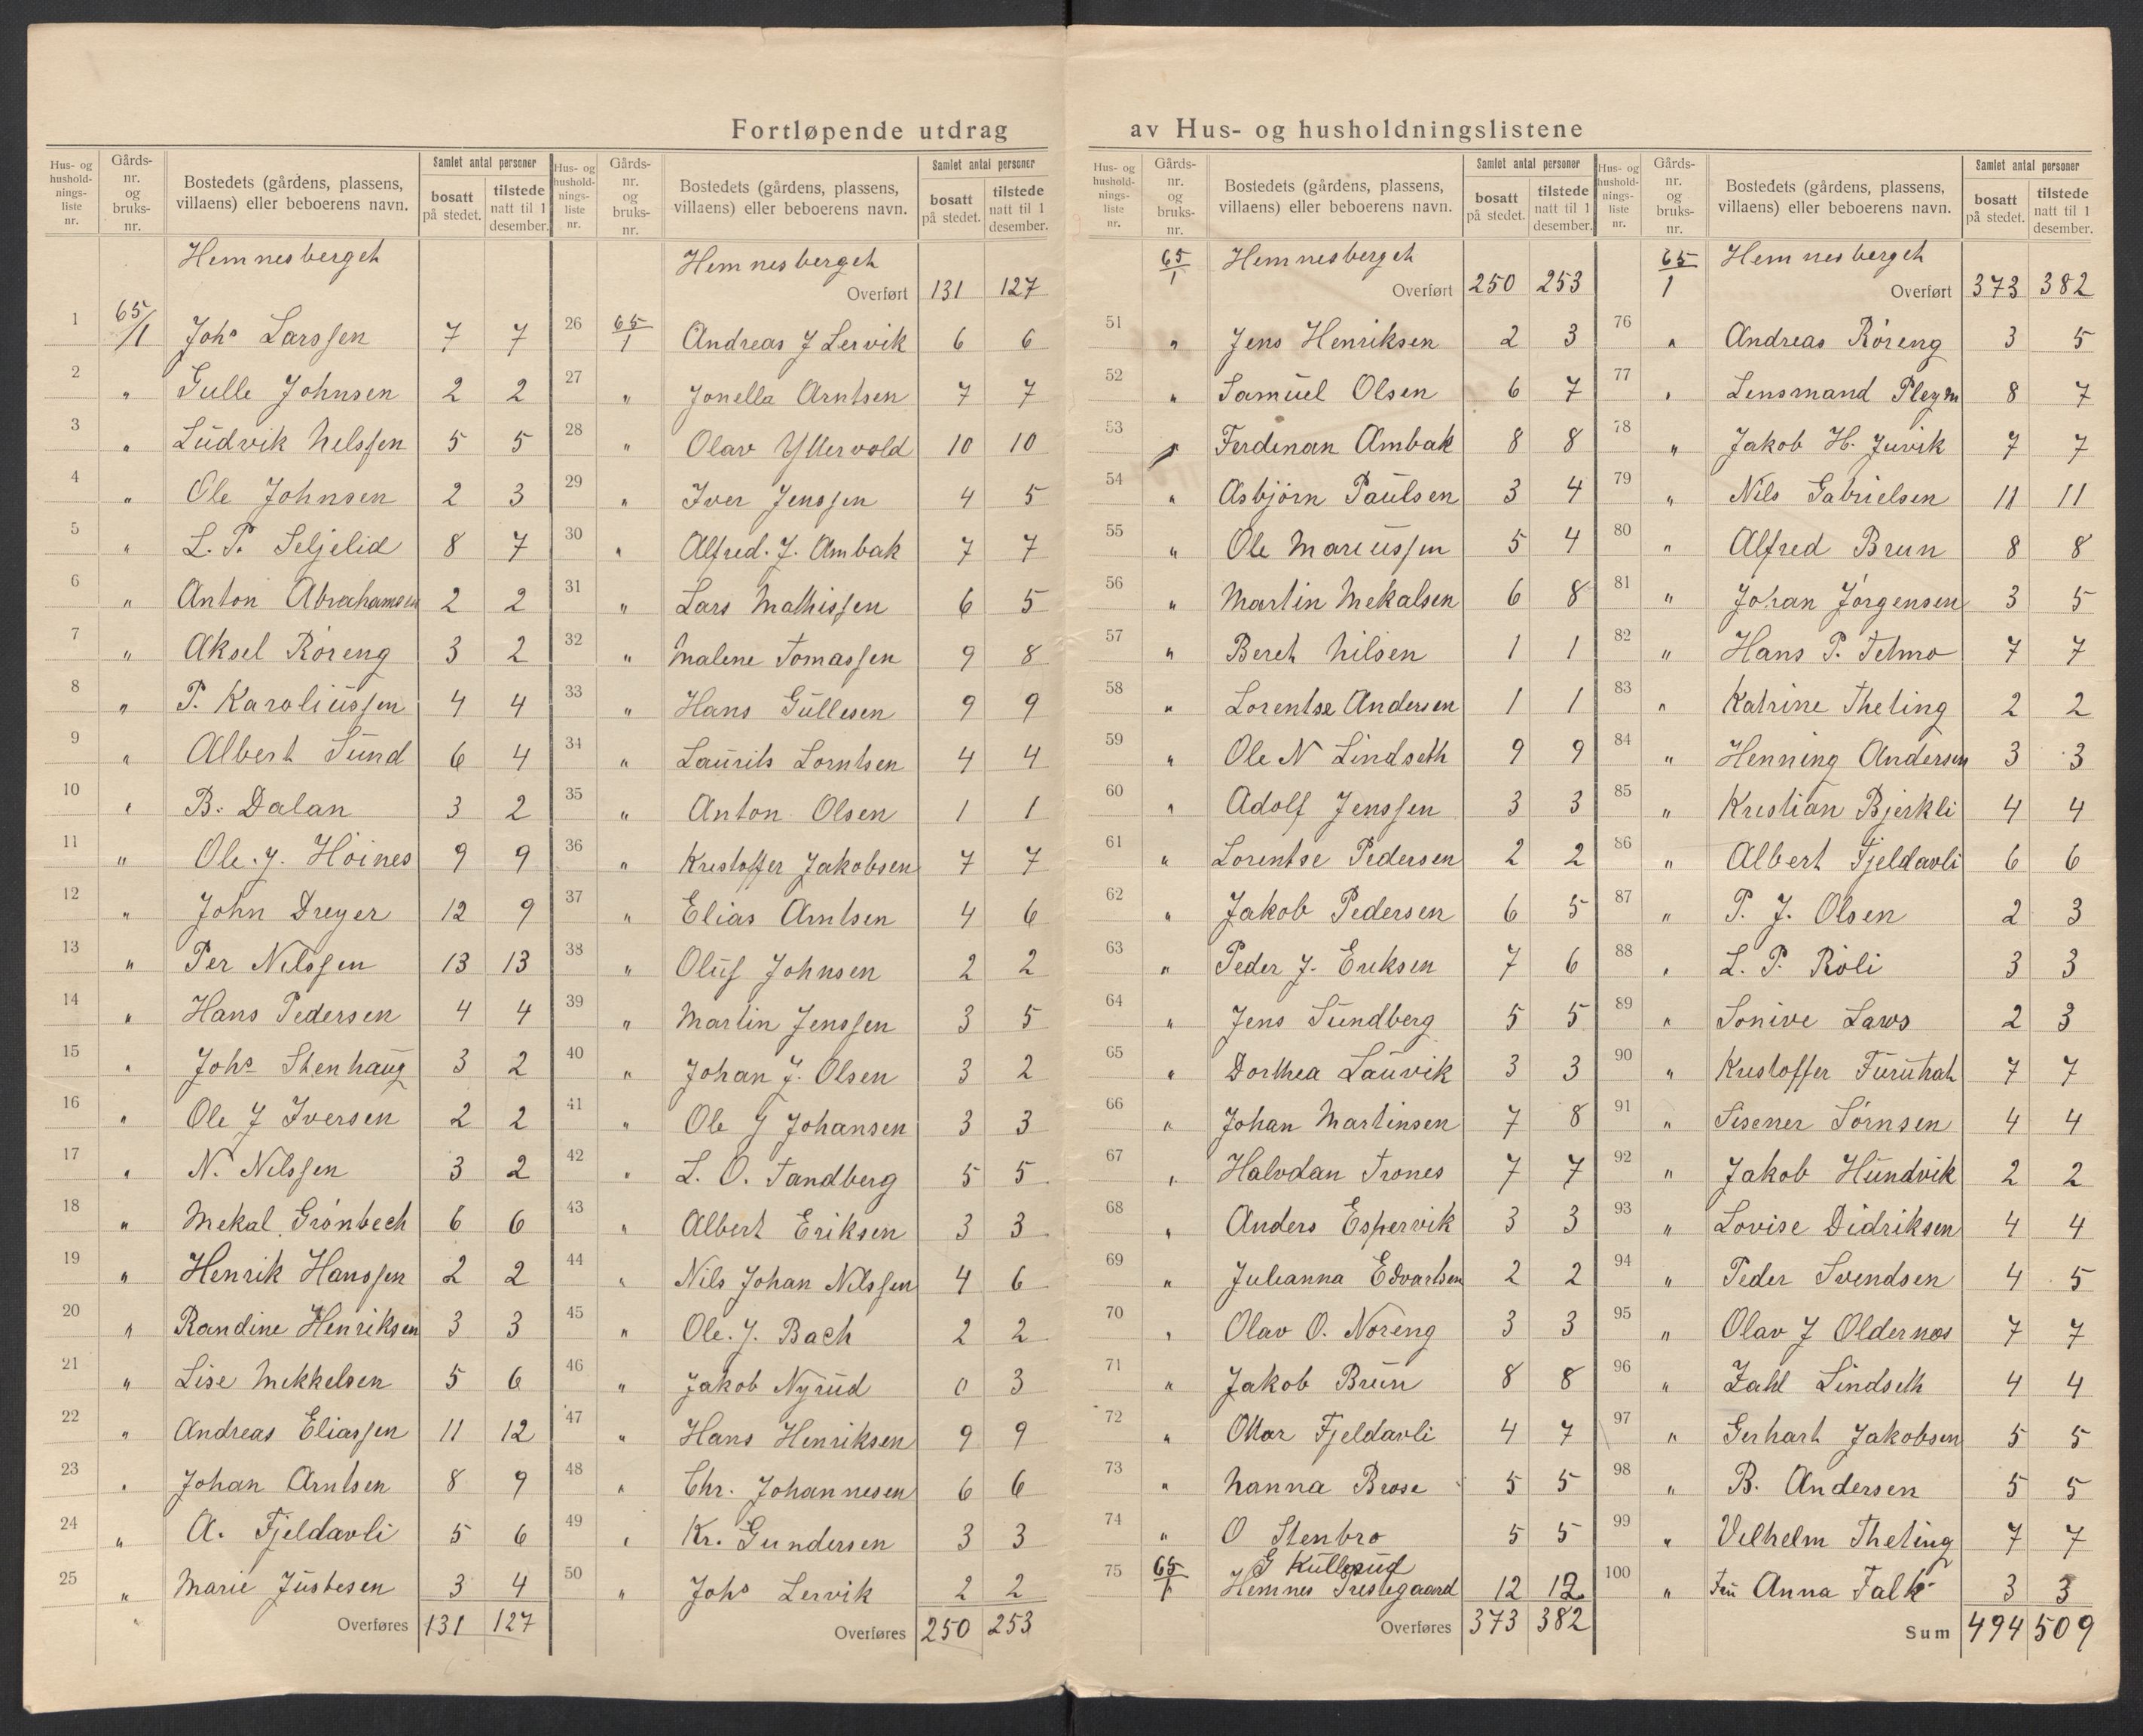 Fortløpende utdrag av Hus- og husholdningslistene
Hus- og husholdningsliste nr.
Gårds-nr. og bruks-nr.
Bostedets (gårdens, plassens, villaens) eller beboerens navn.
Samlet antal personer
bosatt på stedet.
tilstede natt til 1 desember.
Hemnesberget
1 65/1 Johs Larssen 7 7
2 " Gulle Johnsen 2 2
3 " Ludvik Nelssen 5 5
4 " Ole Johnsen 2 3
5 " L. P. Seljelid 8 7
6 " Anton Abrahamsen 2 2
7 " Aksel Röreng 3 2
8 " P. Karoliussen 4 4
9 " Albert Sund 6 4
10 " B. Dalan 3 2
11 " Ole. J. Höines 9 9
12 " John Dreyer 12 9
13 " Per Nilssen 13 13
14 " Hans Pedersen 4 4
15 " Johs Stenhaug 3 2
16 " Ole J Iversen 2 2
17 " N. Nilssen 3 2
18 " Mekal Grönbech 6 6
19 " Henrik Hanssen 2 2
20 " Randine Henriksen 3 3
21 " Lise Mekkelsen 5 6
22 " Andreas Eliassen 11 12
23 " Johan Arntsen 8 9
24 " A. Fjeldavli 5 6
25 " Marie Justesen 3 4
Overføres 131 127
Hus- og husholdningsliste nr.
Gårds-nr. og bruks-nr.
Bostedets (gårdens, plassens, villaens) eller beboerens navn.
Samlet antal personer
bosatt på stedet.
tilstede natt til 1 desember.
Hemnesberget
Overført 131 127
26 65/1 Andreas J Lervik 6 6
27 " Jonella Arntsen 7 7
28 " Olav Yttervold 10 10
29 " Iver Jenssen 4 5
30 " Alfred. J. Ambak 7 7
31 " Lars Mathissen 6 5
32 " Malene Tomassen 9 8
33 " Hans Gullesen 9 9
34 " Laurits Lorntsen 4 4
35 " Anton Olsen 1 1
36 " Kristoffer Jakobsen 7 7
37 " Elias Arntsen 4 6
38 " Oluf Johnsen 2 2
39 " Martin Jenssen 3 5
40 " Johan J. Olsen 3 2
41 " Ole J Johansen 3 3
42 " L. O. Sandberg 5 5
43 " Albert Eriksen 3 3
44 " Nils Johan Nilssen 4 6
45 " Ole. J. Bach 2 2
46 " Jakob Nyrud 0 3
47 " Hans Henriksen 9 9
48 " Chr. Johannesen 6 6
49 " Kr. Gundersen 3 3
50 " Johs Lervik 2 2
Overføres 250 253
Hus- og husholdningsliste nr.
Gårds-nr. og bruks-nr.
Bostedets (gårdens, plassens, villaens) eller beboerens navn.
Samlet antal personer
bosatt på stedet.
tilstede natt til 1 desember.
65/1 Hemnesberget
Overført 250 253
51 " Jens Henriksen 2 3
52 " Samuel Olsen 6 7
53 " Ferdinan Ambak 8 8
54 " Asbjörn Paulsen 3 4
55 " Ole Mariussen 5 4
56 " Martin Mekalsen 6 8
57 " Beret Nilsen 1 1
58 " Lorentse Andersen 1 1
59 " Ole N Lindseth 9 9
60 " Adolf Jenssen 3 3
61 " Lorentse Pedersen 2 2
62 " Jakob Pedersen 6 5
63 " Peder J. Eriksen 7 6
64 " Jens Sundberg 5 5
65 " Dorthea Lauvik 3 3
66 " Johan Martinsen 7 8
67 " Halvdan Trones 7 7
68 " Anders Espervik 3 3
69 " Julianna Edvartsen 2 2
70 " Olav O. Noreng 3 3
71 " Jakob Brun 8 8
72 " Ottar Fjeldavli 4 7
73 " Nanna Brose 5 5
74 " O Stenbro 5 5
75 65/1 G Kullerud
Hemnes Prestegaard 12 12
Overføres 373 382
Hus- og husholdningsliste nr.
Gårds-nr. og bruks-nr.
Bostedets (gårdens, plassens, villaens) eller beboerens navn.
Samlet antal personer
bosatt på stedet.
tilstede natt til 1 desember.
65/1 Hemnesberget
Overført 373 382
76 " Andreas Röreng 3 5
77 " Lensmand Pleym 8 7
78 " Jakob H. Juvik 7 7
79 " Nils Gabrielsen 11 11
80 " Alfred Brun 8 8
81 " Johan Jörgensen 3 5
82 " Hans P. Telmo 7 7
83 " Katrine Theting 2 2
84 " Henning Andersen 3 3
85 " Kristian Bjerkli 4 4
86 " Albert Fjeldavli 6 6
87 " P. J. Olsen 2 3
88 " L. P. Röli 3 3
89 " Sonive Laws 2 3
90 " Kristoffer Furuhat 7 7
91 " Sörnsen 4 4
92 " Jakob Hundvik 2 2
93 " Lovise Didriksen 4 4
94 " Peder Svendsen 4 5
95 " Olav J Oldernes 7 7
96 " Zahl Lindseth 4 4
97 " Gerhart Jakobsen 5 5
98 " B. Andersen 5 5
99 " Vilhelm Theting 7 7
100 " Fru Anna Falk 3 3
Sum 494 509